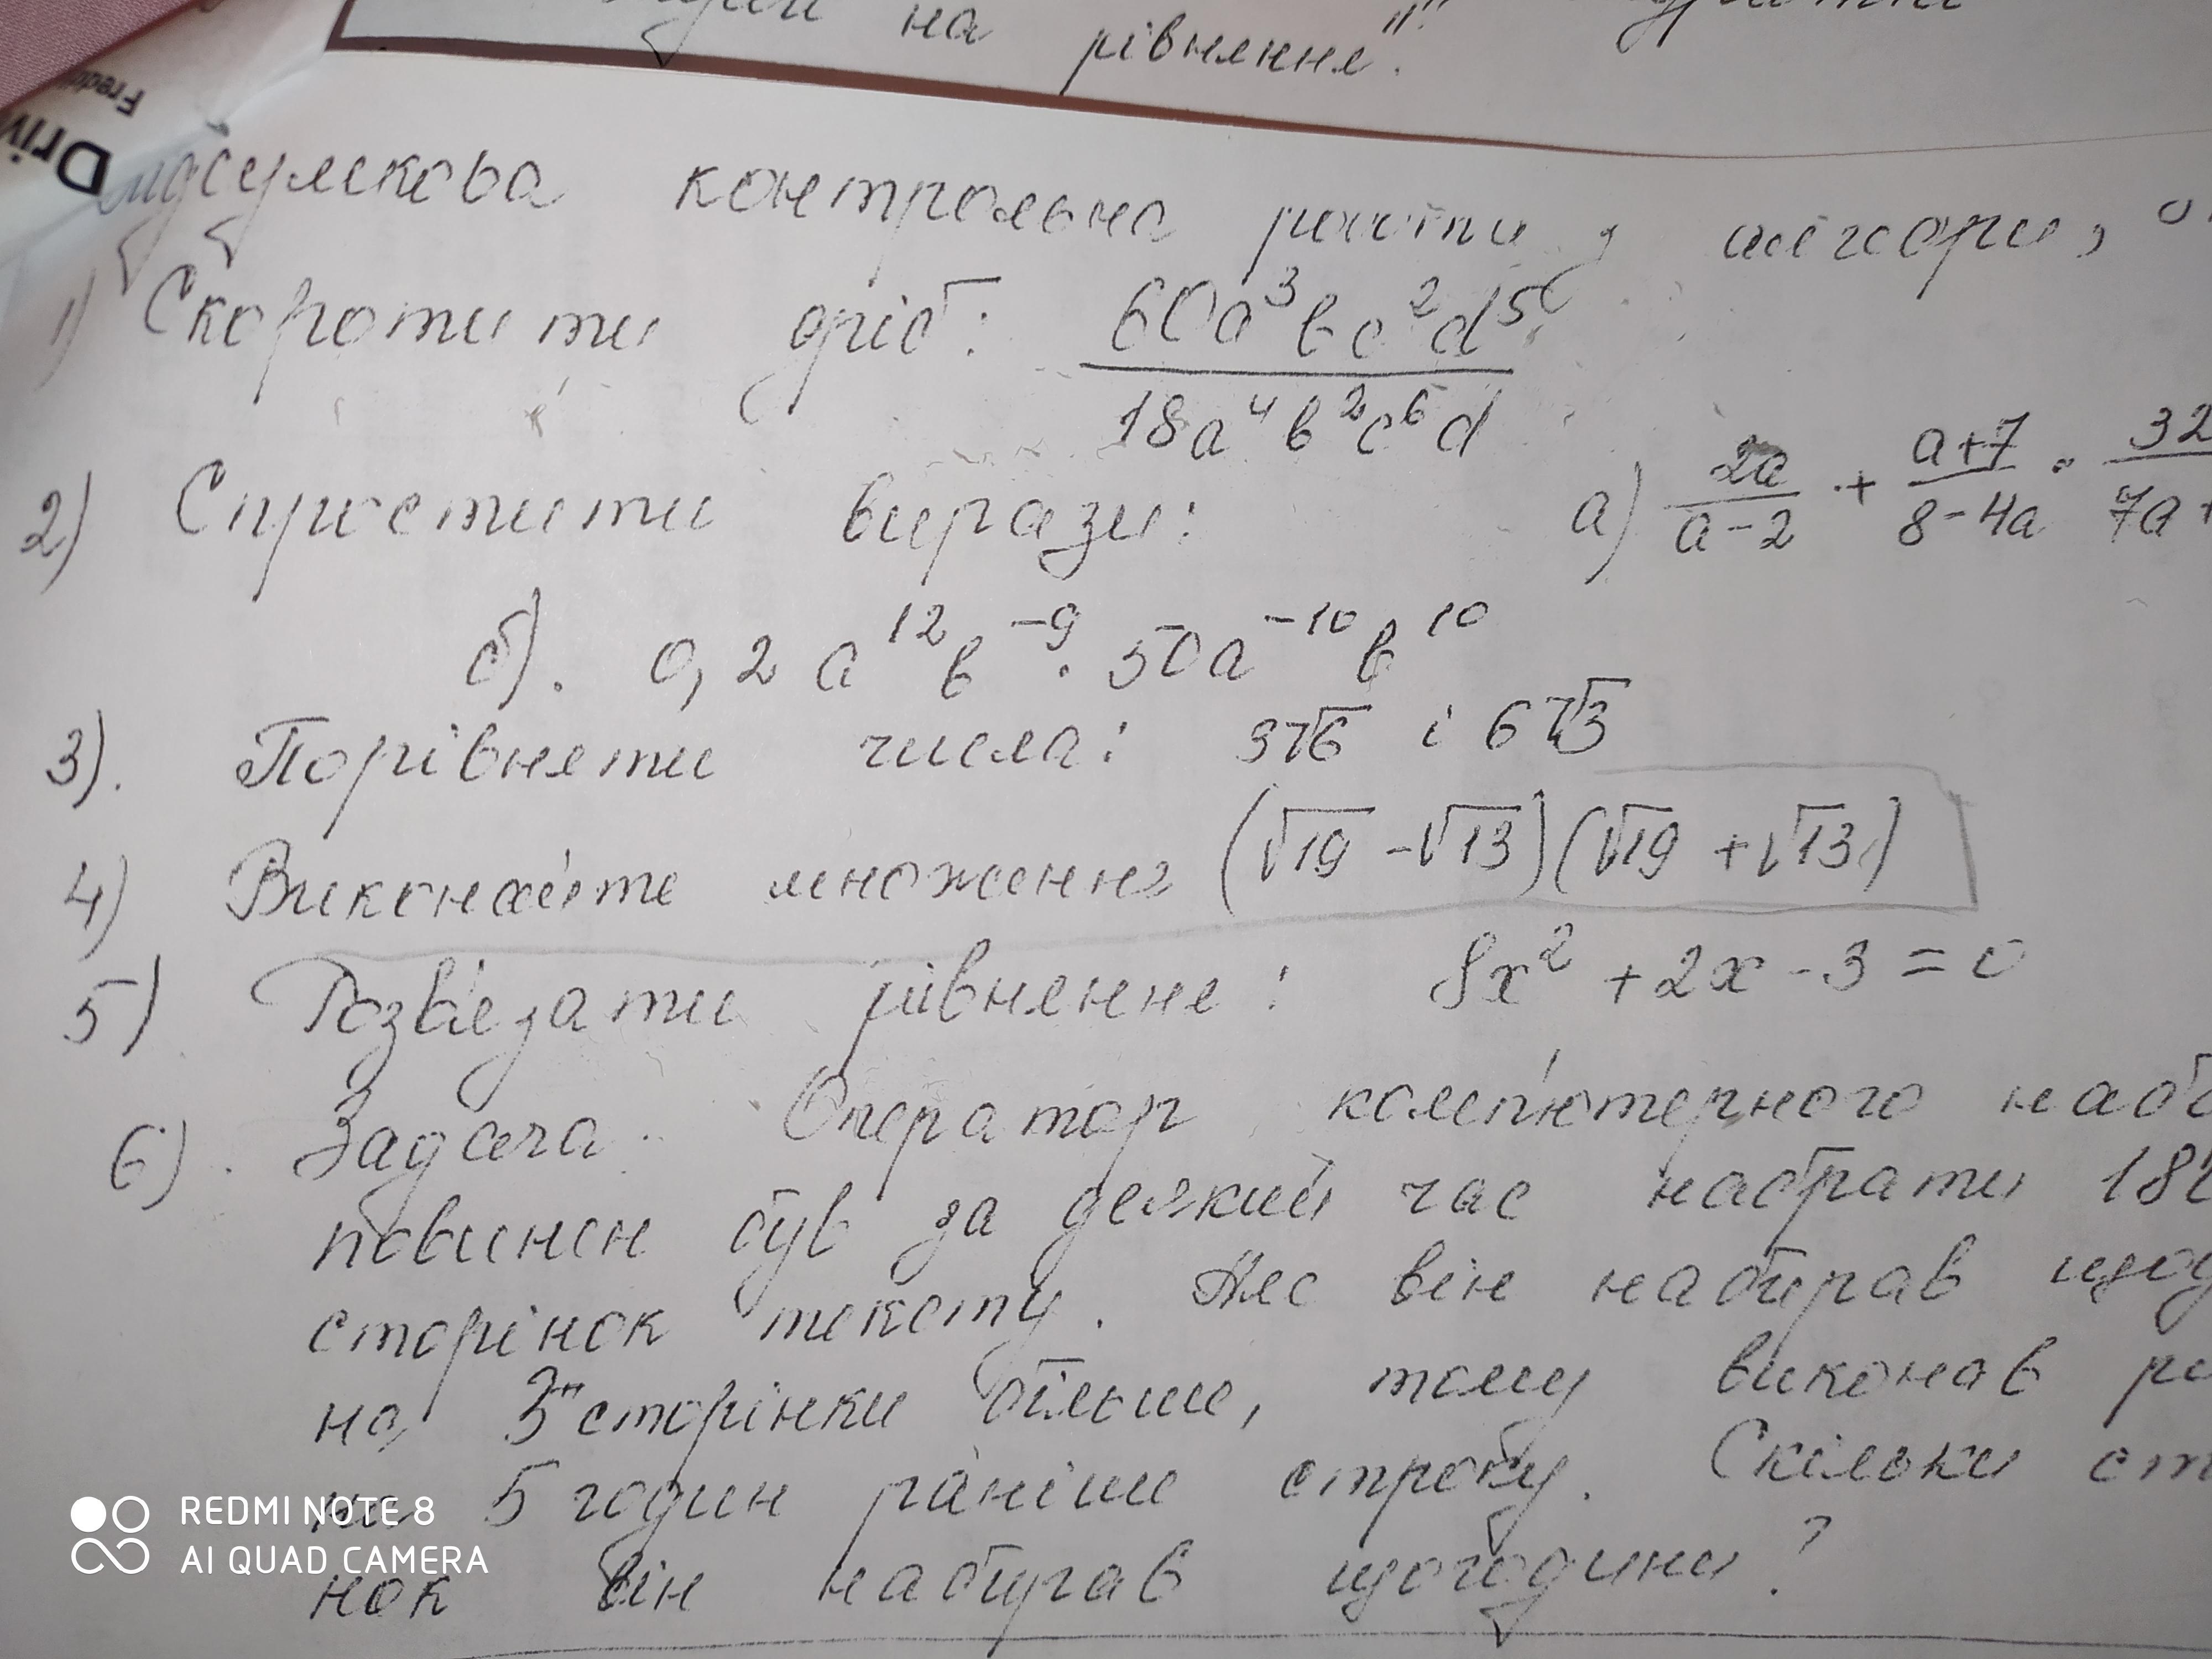 на рівняння".
Driv
Fredri
Підсумкова контрольна робота з алгебри,
1) Скоротити дріб: 60a³bc²d⁵ / 18a⁴b²c⁶d
2) Спростити вирази: а) 2a/(a-2) + (a+7)/(8-4a) · 32/7a+
б). 0,2 a¹²b⁻⁹ · 50a⁻¹⁰b¹⁰
3). Порівняти числа: 3√6 і 6√3
4) Виконайте множення (√19 - √13)(√19 + √13)
5) Розв'язати рівняння: 8x² + 2x - 3 = 0
6). Задача. Оператор комп'ютерного наб
повинен був за деякий час набрати 18
сторінок тексту. Але він набирав щод
на 3 сторінки більше, тому виконав р
на 5 годин раніше строку. Скільки ст
нок він набирав щогодини?
REDMI NOTE 8
AI QUAD CAMERA